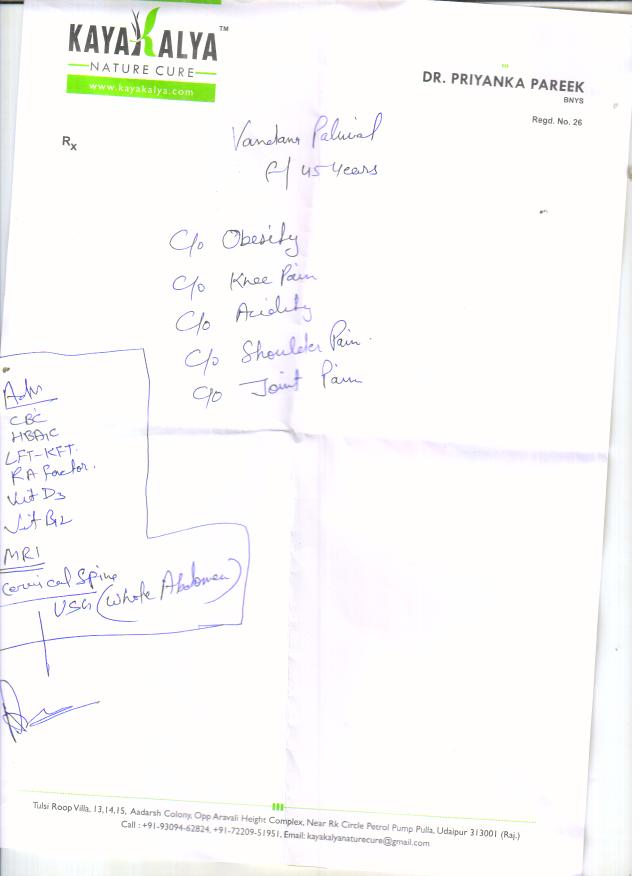 KAYAKALYA™
NATURE CURE
www.kayakalya.com
DR. PRIYANKA PAREEK
BNYS
Regd. No. 26
Rx
Vandana
F/ 45 Years
C/o Obesity
C/o Knee Pain
C/o Acidity
C/o Shoulder Pain.
C/o Joint Pain
Adv
CBC
HBA1C
LFT-KFT.
RA Factor.
Vit D3
Vit B12
MRI
Cervical Spine
USG (Whole Abdomen)
Tulsi Roop Villa, 13,14,15, Aadarsh Colony, Opp Aravali Height Complex, Near Rk Circle Petrol Pump Pulla, Udaipur 313001 (Raj.)
Call : +91-93094-62824, +91-72209-51951, Email: kayakalyanaturecure@gmail.com